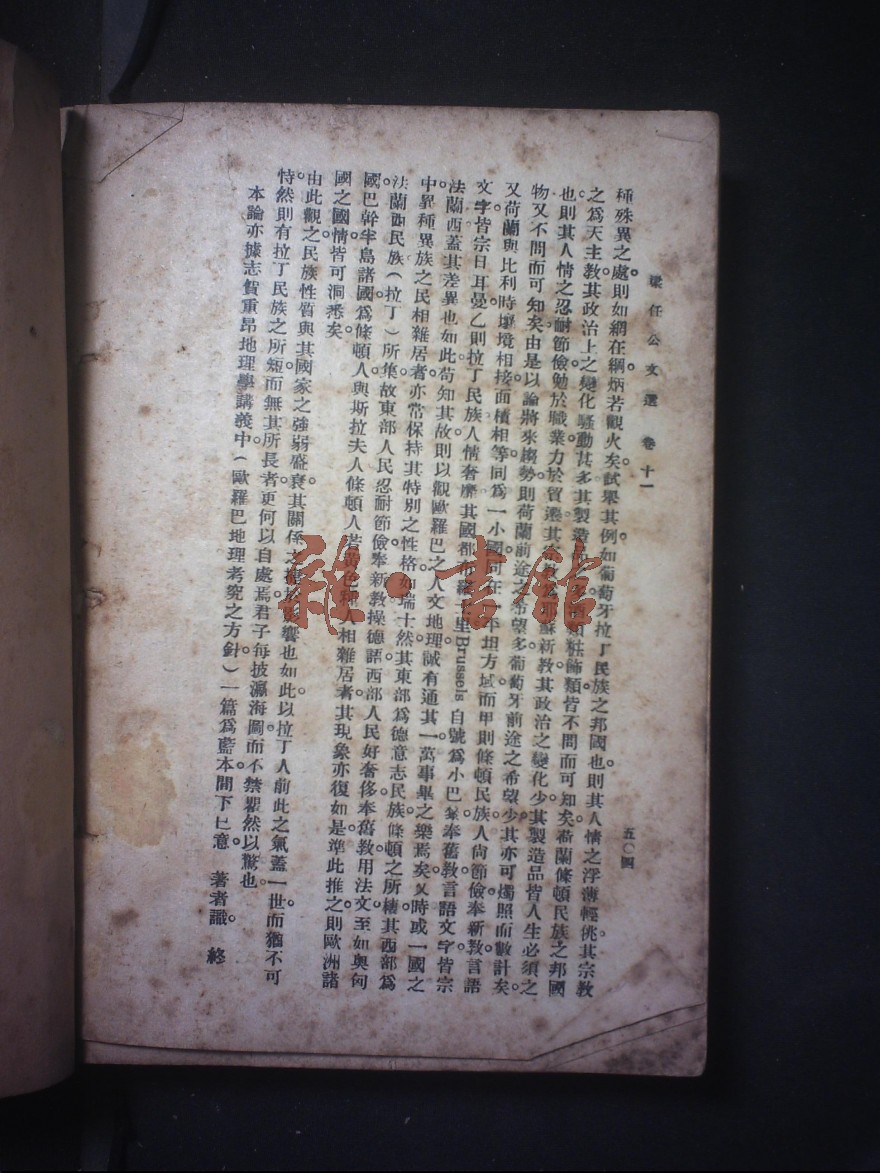 梁任公文選 卷十一
五〇四
種殊異之處則如網在綱炳若觀火矣試舉其例如葡萄牙拉丁民族之邦國也則其人情之浮薄輕佻其宗教
之爲天主教其政治上之變化騷動甚多其製造 類粧飾類皆不問而可知矣荷蘭條頓民族之邦國
也則其人情之忍耐節儉勉於職業力於貿遷其 蘇新教其政治之變化少其製造品皆人生必須之
物又不問而可知矣由是以論將來趨勢則荷蘭前途之希望多葡萄牙前途之希望少其亦可燭照而數計矣
又荷蘭與比利時壤境相接面積相等同爲一小國同在一平坦方域而甲則條頓民族人尚節儉奉新教言語
文字皆宗日耳曼乙則拉丁民族人情奢靡其國都 里Brussels自號爲小巴黎奉舊教言語文字皆宗
法蘭西蓋其差異也如此苟知其故則以觀歐羅巴之人文地理誠有通其一萬事畢之樂焉矣又時或一國之
中異種異族之民相雜居者亦常保持其特別之性格如瑞士然其東部爲德意志民族條頓之所棲其西部爲
法蘭西民族(拉丁)所集故東部人民忍耐節儉奉新教操德語西部人民好奢侈奉舊教用法文至如奧匈
國巴幹半島諸國爲條頓人與斯拉夫人條頓人若黃色種人相雜居者其現象亦復如是準此推之則歐洲諸
國之國情皆可洞悉矣
由此觀之民族性質與其國家之強弱盛衰其關係之捷於影響也如此以拉丁人前此之氣蓋一世而猶不可
恃然則有拉丁民族之所短而無其所長者更何以自處焉君子每披瀛海圖而不禁瞿然以驚也
本論亦據志賀重昂地理學講義中(歐羅巴地理考究之方針)一篇爲藍本間下己意 著者識 終
雜·書館